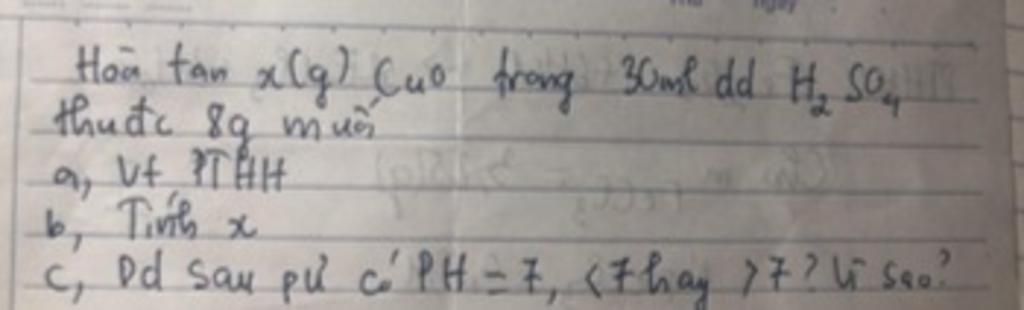 Hoà tan x(g) CuO trong 30ml dd H₂SO₄
thuđc 8g muối
a, Vt PTHH
b, Tính x
c, Dd sau pứ có PH = 7, <7 hay >7? Vì sao?